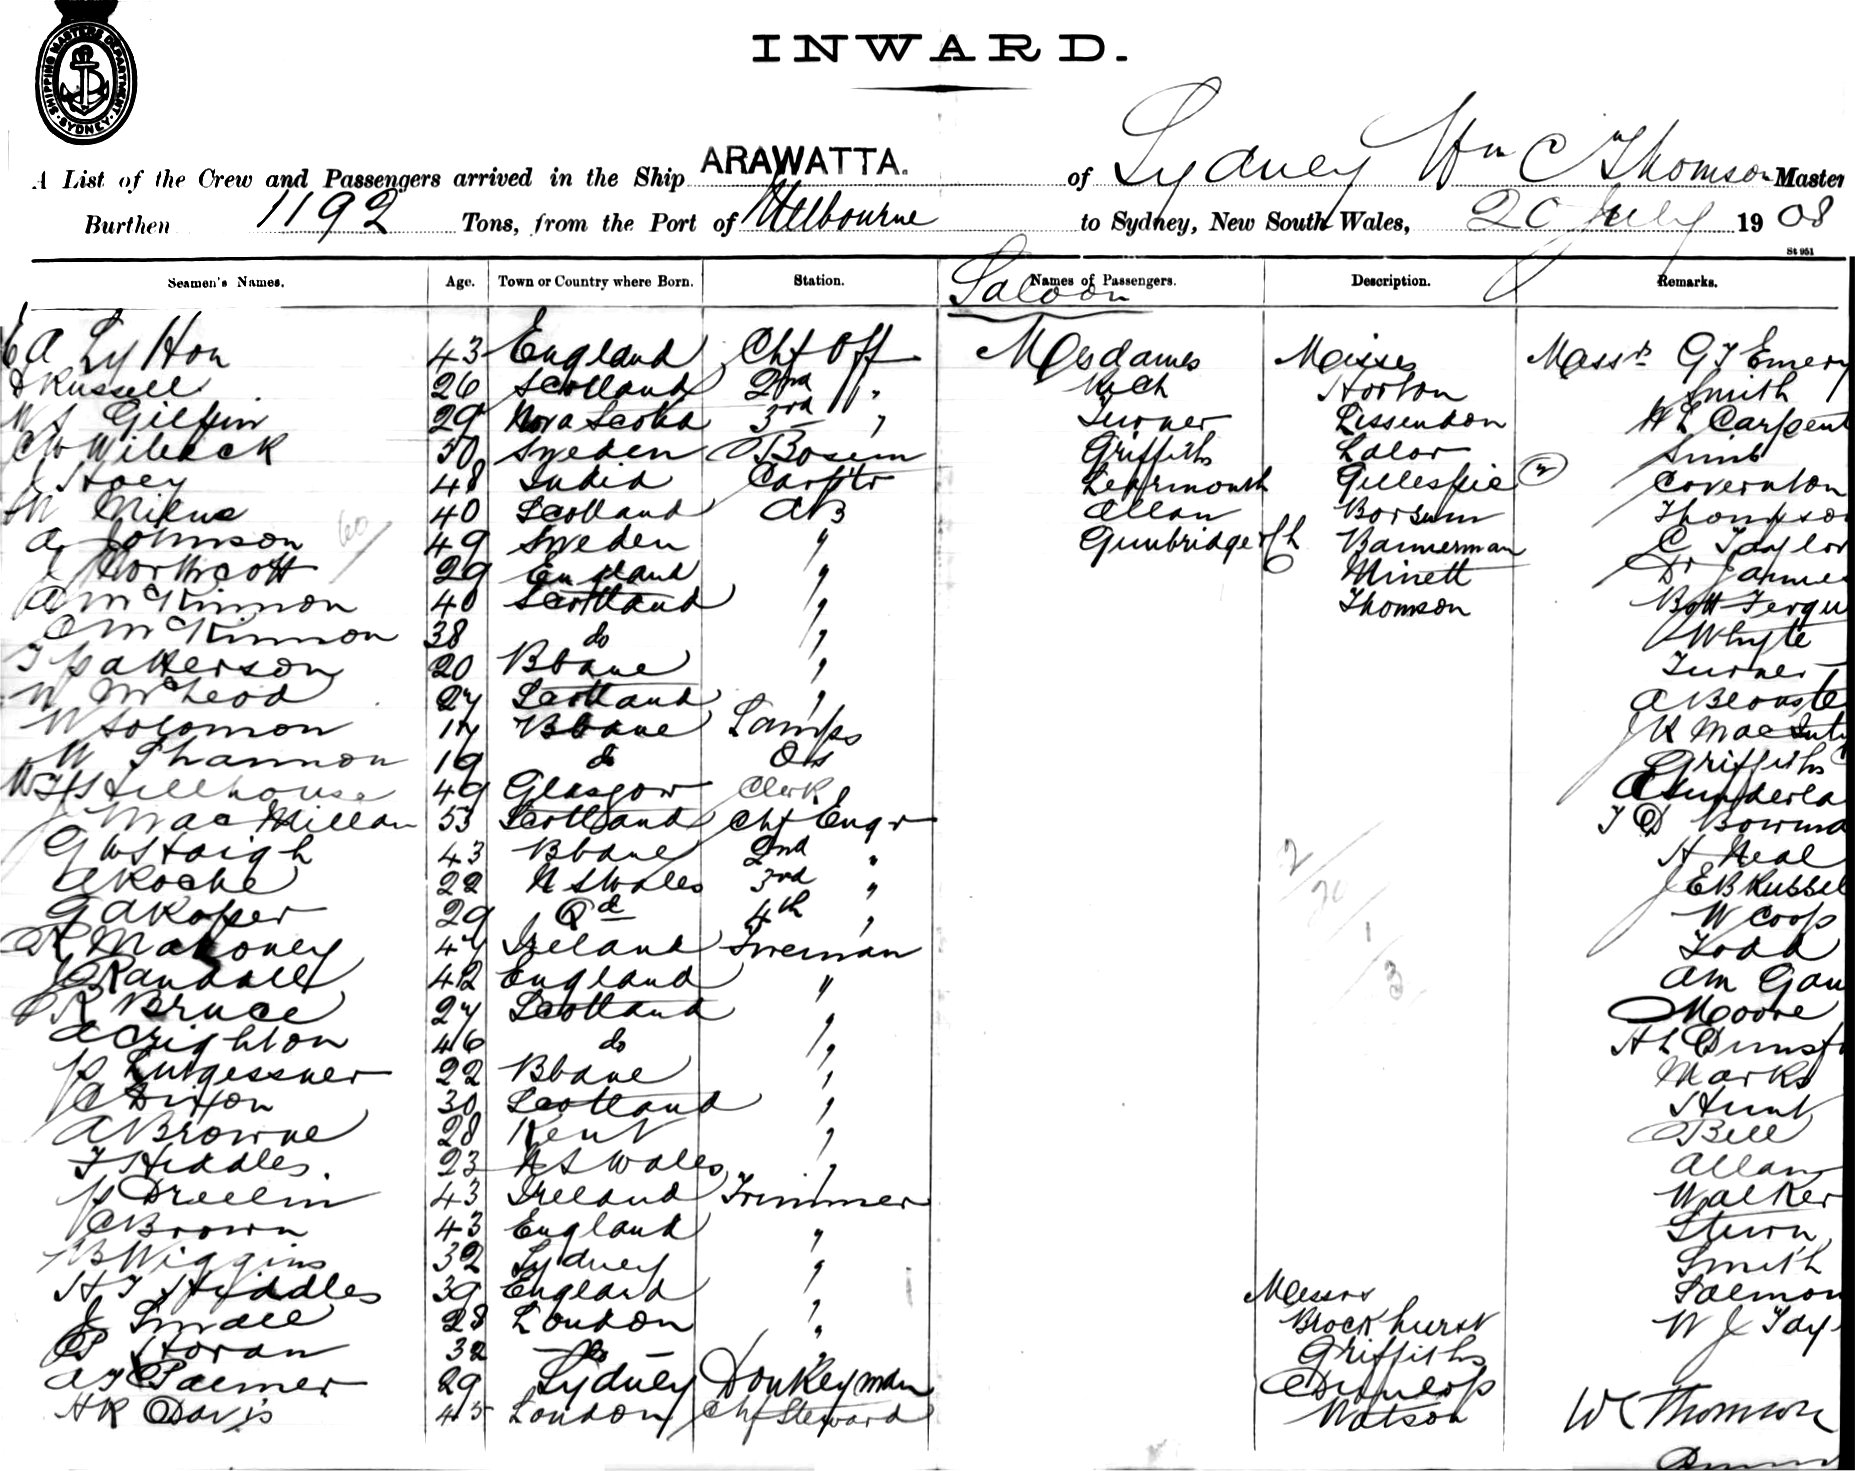 SHIPPING MASTERS DEPARTMENT
SYDNEY
INWARD.
A List of the Crew and Passengers arrived in the Ship ARAWATTA. of Sydney Wm C Thomson Master
Burthen 1192 Tons, from the Port of Melbourne to Sydney, New South Wales, 20 July 1908
St 951
Seamen's Names. Age. Town or Country where Born. Station. Names of Passengers. Description. Remarks.
Saloon
E A 43 England Chf Off Mesdames Misses Messrs G F Emery
Russell 26 Scotland 2nd " Rich Horton Smith
W S Gilpin 29 Nova Scotia 3rd " Turner Lissendon H L Carpent
50 Sweden Bosun Griffiths Lalor
J Hoey 48 India Carptr Learmonth Gillespie (2) Covernton
M Milne 40 Scotland AB Allan Thompson
A Johnson 49 Sweden " Bannerman C Taylor
60
J Northcott 29 England " Minett Dr
A McKinnon 40 Scotland " Thomson Bott Fergu
McKinnon 38 do " Whyte
T Patterson 20 Bbane " Turner
N McLeod 27 Scotland "
W Solomon 17 Bbane Lamps J K
W Shannon 19 do OS Griffiths
Stillhouse 49 Glasgow Clerk Sunderla
J MacMillan 53 Scotland Chf Engr Bowma
G W Haigh 43 Bbane 2nd " H Neal
A Roche 22 N S Wales 3rd " J E B Russel
G A Roper 29 Qd 4th " W Coop
R Mahoney 47 Ireland Fireman Todd
J Randall 42 England " A M Gau
R Bruce 27 Scotland " Moore
A Crighton 46 do " H L Dunsf
P Lutgessner 22 Bbane " Marks
J Dixon 30 Scotland " Hunt
A Browne 28 Kent " Bell
T Hiddles. 23 N S Wales " Allan
P Dreelin 43 Ireland Trimmer Walker
C Brown 43 England "
B Wiggins 32 Sydney " Smith
H T Hiddles 39 England " Messrs Salmon
J Small 28 London " Brockhurst W J Tay
P Horan 32 do " Griffiths
A T Palmer 29 Sydney Donkeyman Dunlop
H R Davis 45 London Chf Steward Watson W C Thomson